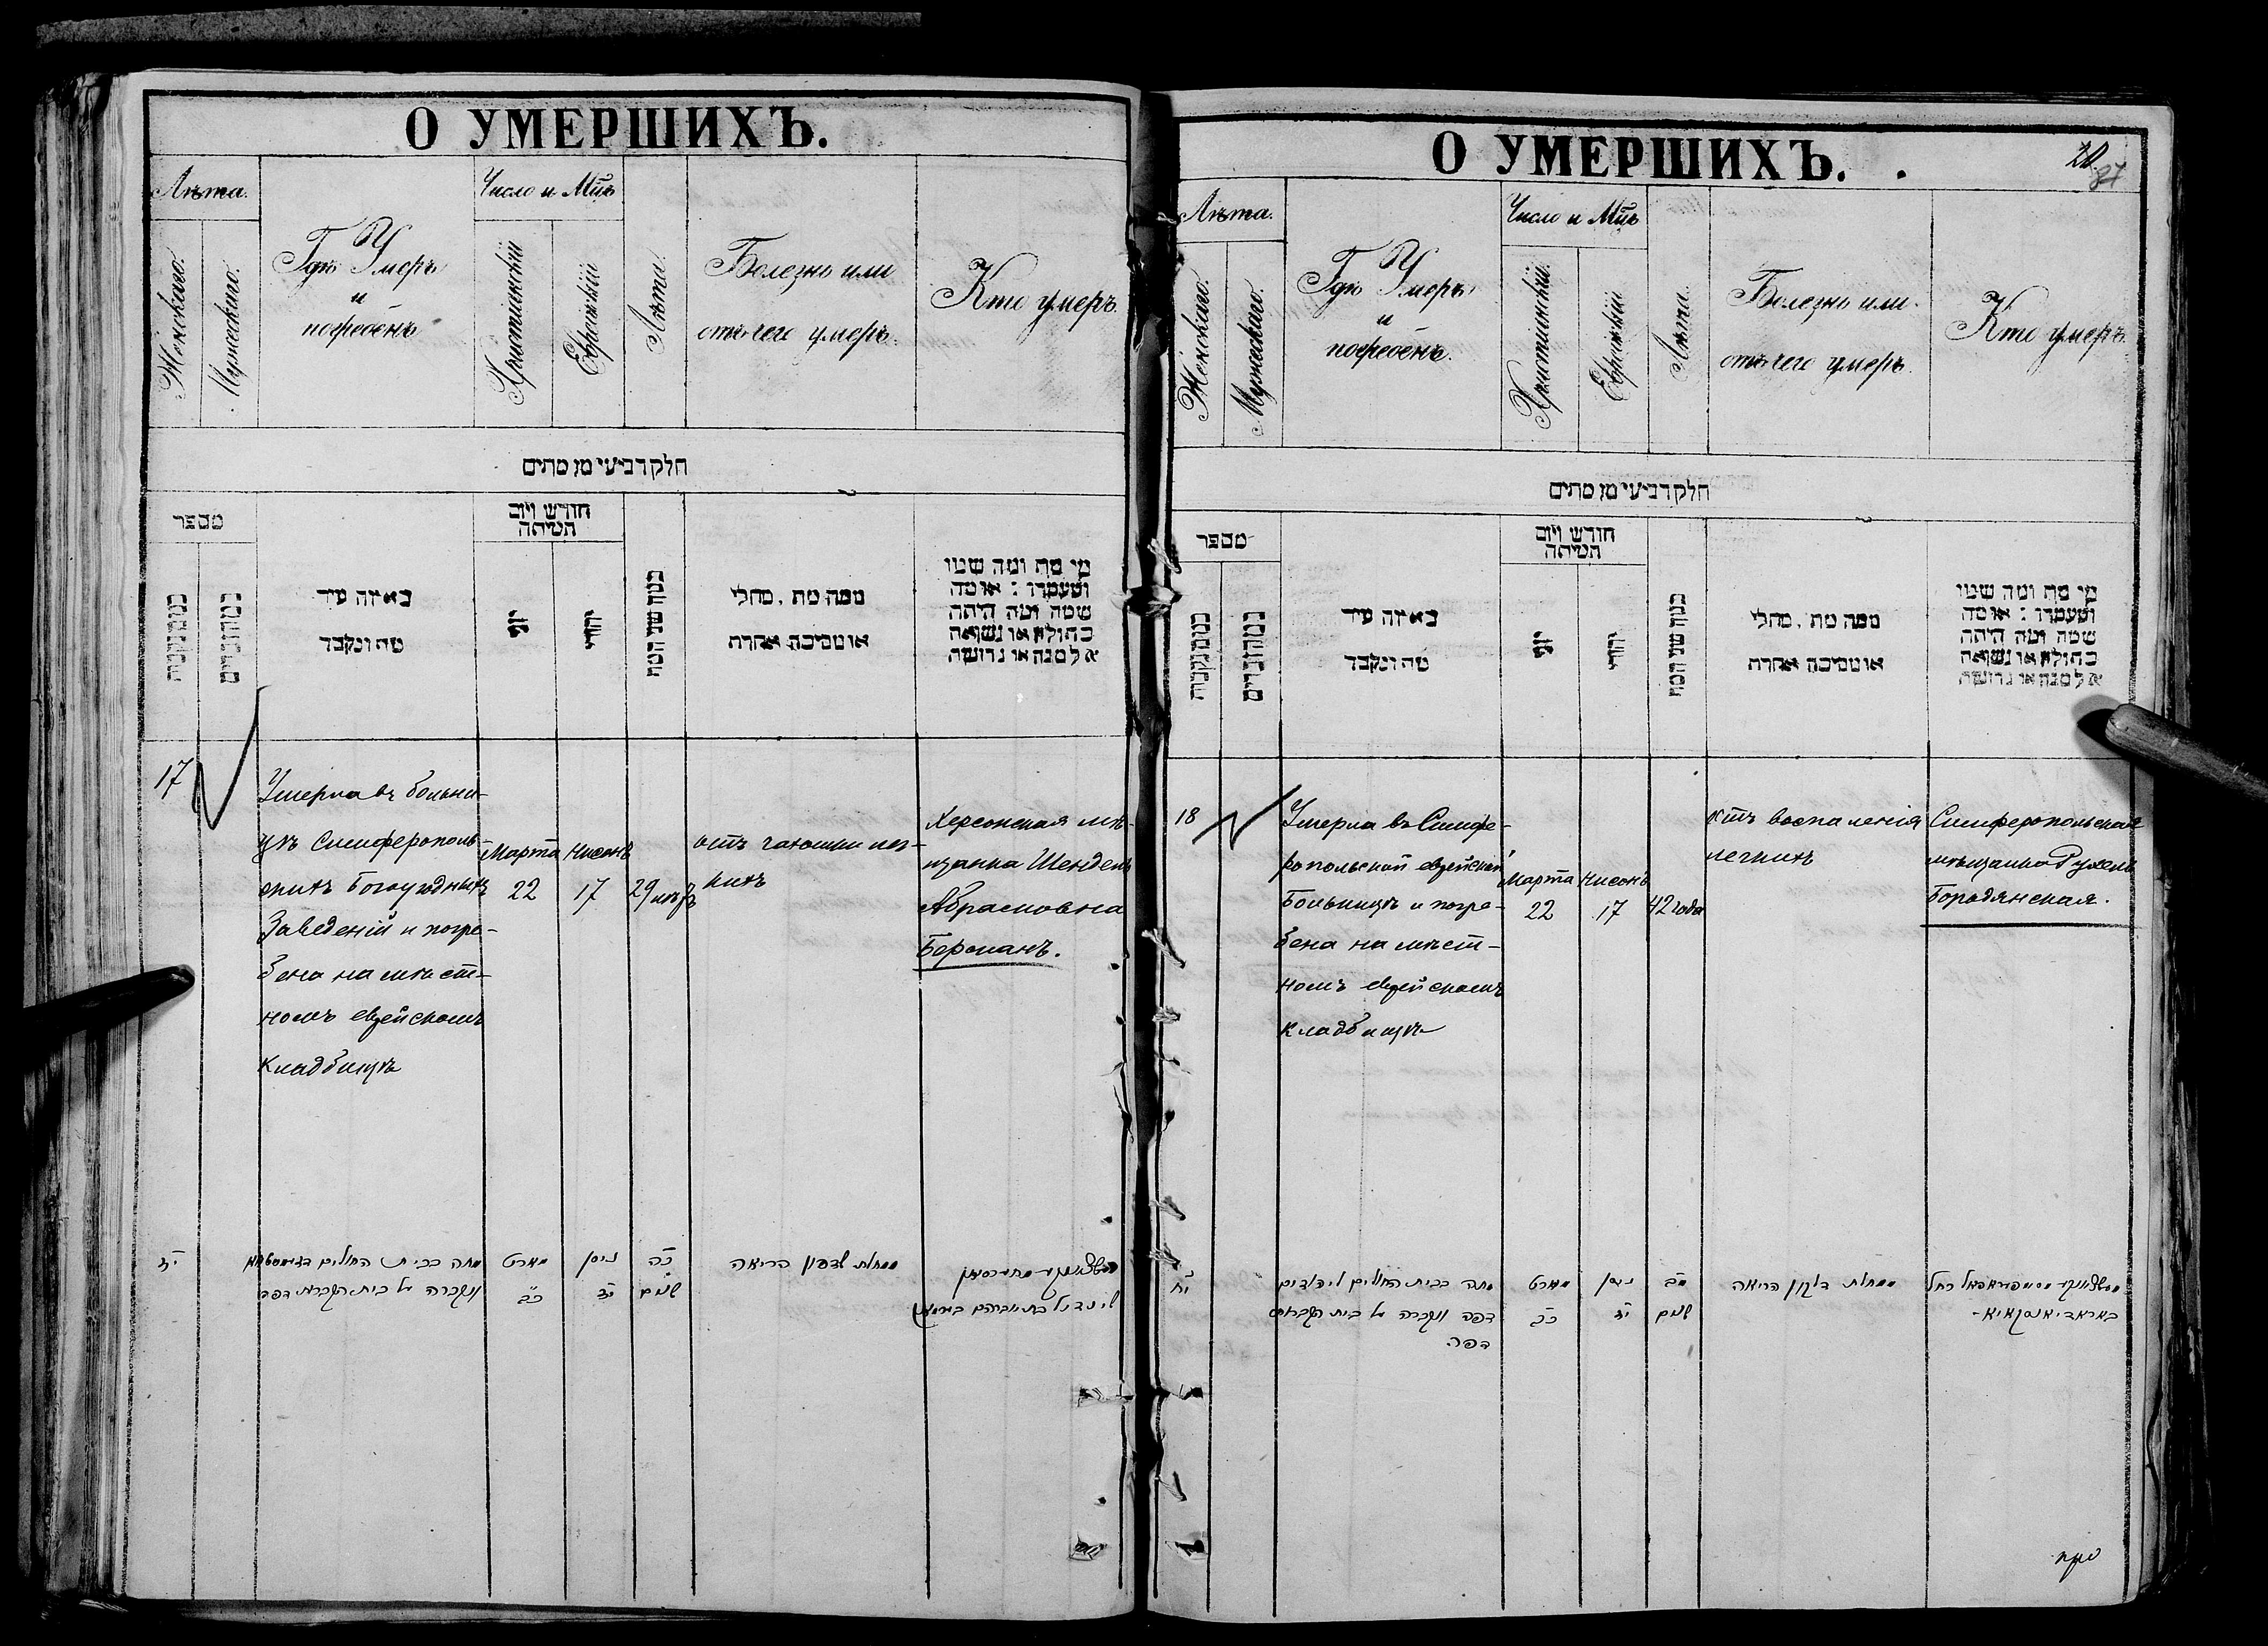 О УМЕРШИХЪ.
Лѣта.
Женскаго.
Мужескаго.
Гдѣ Умеръ
и
погребенъ
Число и Мцъ
Христіанскій
Еврейскій
Лѣта.
Болезнь или
отъ чего умеръ.
Кто умеръ.
חלק רביעי מן מתים
מספר
באיזה עיר
מת ונקבר
חודש ויום
המיתה
יוני
יהודי
ממה מת, מחלי
או מסיבה אחרת
מי מת ומה שמו
ומעמדו : או מה
שמה ומה היתה
בתולה או נשואה
אלמנה או גרושה
17
Умерла въ больни-
цѣ Симферополь-
скихъ Богоугодныхъ
Заведеній и погре-
бена на мѣст-
номъ еврейскомъ
кладбищѣ
Марта
22
Нисонъ
17
29 лѣтъ
отъ чахотки лег-
кихъ
Херсонская мѣ-
щанка Шендель
Абрамовна
Берманъ.
יז
מתה בבית החולים
ונקברה על בית הקברות דפה
מארט
כב
ניסן
יז
שנים
ממחלת שדפון הריאה
שינדל בת אברהם בערמאן
О УМЕРШИХЪ.
20
87
Лѣта.
Женскаго.
Мужескаго.
Гдѣ Умеръ
и
погребенъ.
Число и Мцъ
Христіанскій
Еврейскій
Лѣта.
Болезнь или
отъ чего умеръ.
Кто умеръ.
חלק רביעי מן מתים
מספר
באיזה עיר
מת ונקבר
חודש ויום
המיתה
יוני
יהודי
ממה מת, מחלי
או מסיבה אחרת
מי מת ומה שמו
ומעמדו : או מה
שמה ומה היתה
בתולה או נשואה
אלמנה או גרושה
18
Умерла въ Симфе-
ропольской еврейской
Больницѣ и погре-
бена на мѣст-
номъ еврейскомъ
кладбищѣ
Марта
22
Нисонъ
17
42 года
отъ воспаленія
легкихъ
Симферопольская
мѣщанка Рухель
Бородянская.
יח
מתה בבית החולים ליהודים
דפה ונקברה על בית הקברות
דפה
מארט
כב
ניסן
יז
מב
שנים
ממחלת דלקת הריאה
רחל
באראדיאנסקאיא